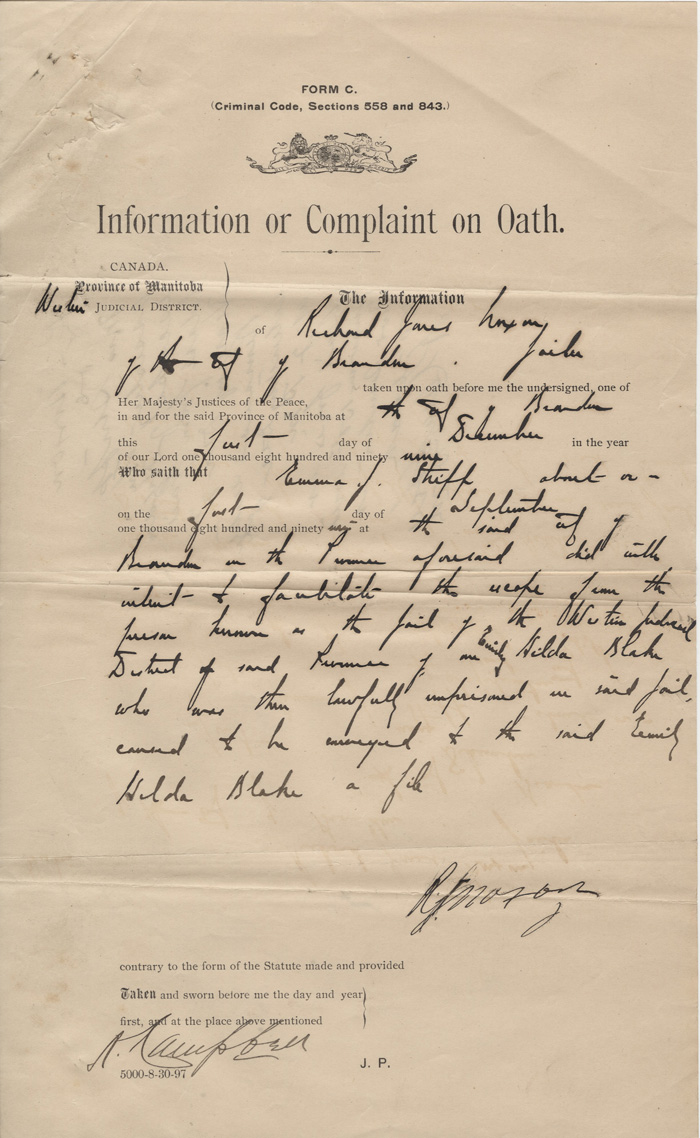 FORM C.
(Criminal Code, Sections 558 and 843.)
Information or Complaint on Oath.
CANADA.
Province of Manitoba
Western JUDICIAL DISTRICT.
The Information
of Richard Jones Noxon
of the City of Brandon. Jailer
taken upon oath before me the undersigned, one of
Her Majesty's Justices of the Peace,
in and for the said Province of Manitoba at the City of Brandon
this first day of December in the year
of our Lord one thousand eight hundred and ninety nine
Who saith that Emma J. Stripp about or
on the first day of September
one thousand eight hundred and ninety nine at the said City of
Brandon in the Province aforesaid did with
intent to facilitate the escape from the
prison known as the jail of the Western Judicial
District of said Province of one Emily Hilda Blake
who was then lawfully imprisoned in said jail,
caused to be conveyed to the said Emily
Hilda Blake a file
R J Noxon
contrary to the form of the Statute made and provided
Taken and sworn before me the day and year
first, and at the place above mentioned
A. Campbell
J. P.
5000-8-30-97